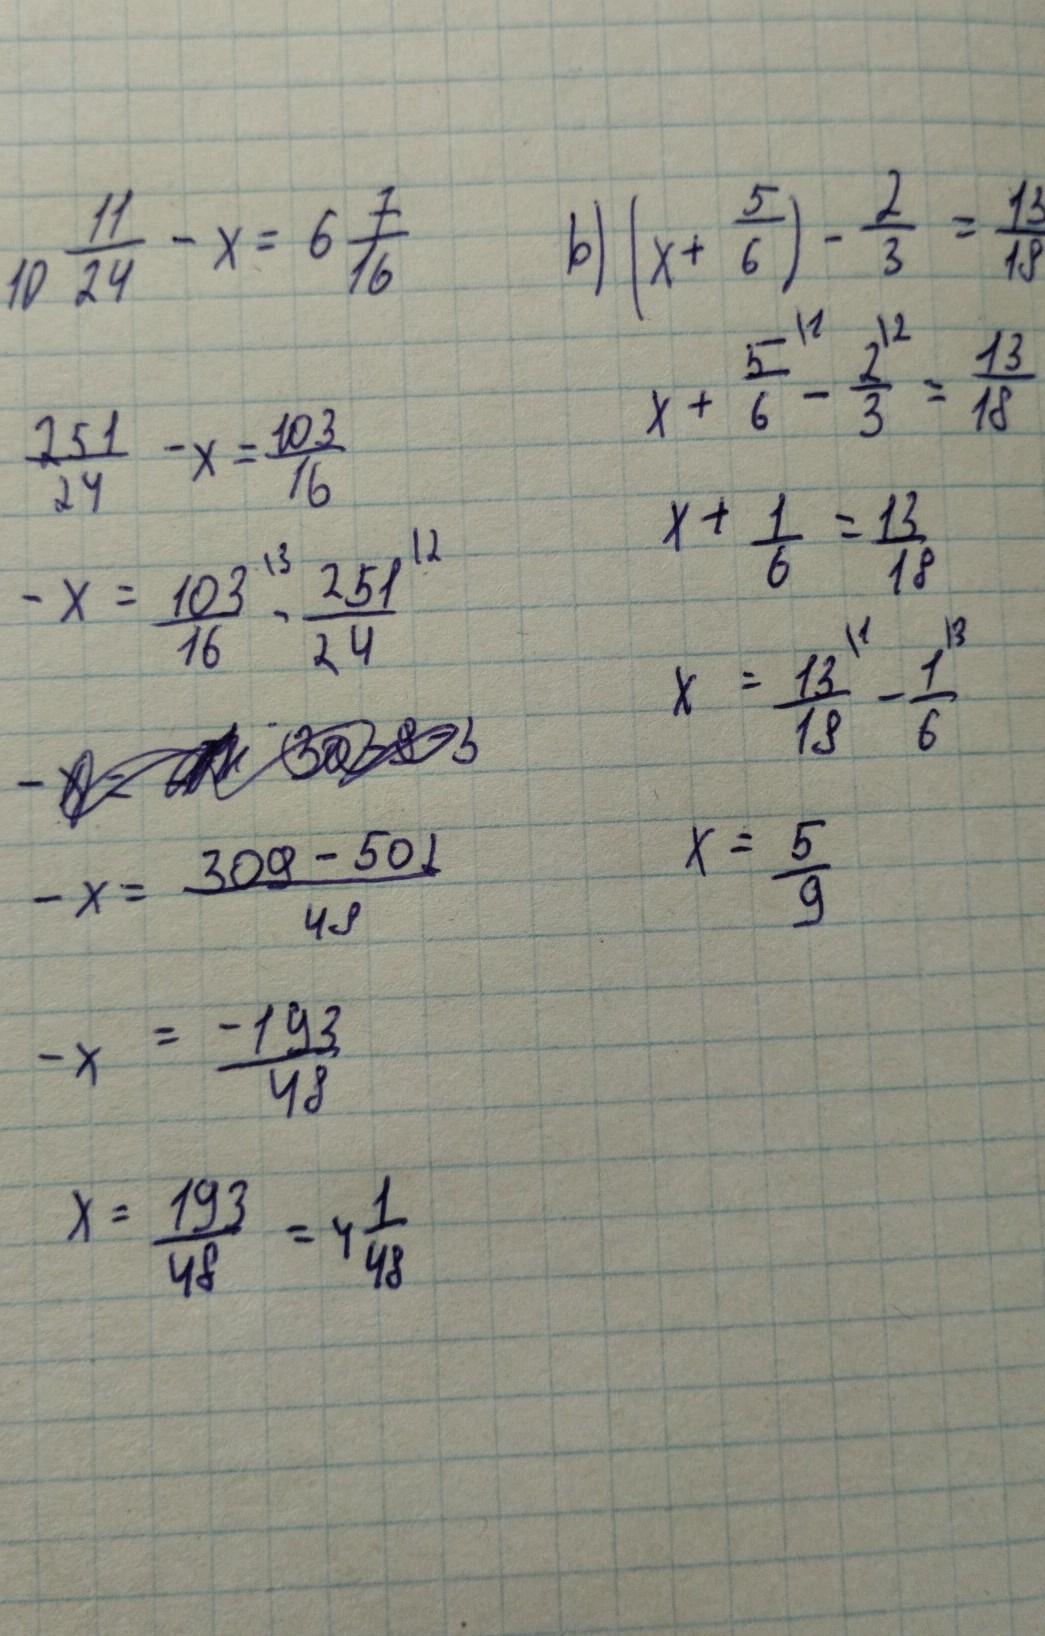 10 11/24 - x = 6 7/16
251/24 - x = 103/16
- x = 103/16 \3 - 251/24 \2
- x = 309 - 502/48
- x = -193/48
x = 193/48 = 4 1/48
b) (x + 5/6) - 2/3 = 13/18
x + 5/6 \1 - 2/3 \2 = 13/18
x + 1/6 = 13/18
x = 13/18 \1 - 1/6 \3
x = 5/9